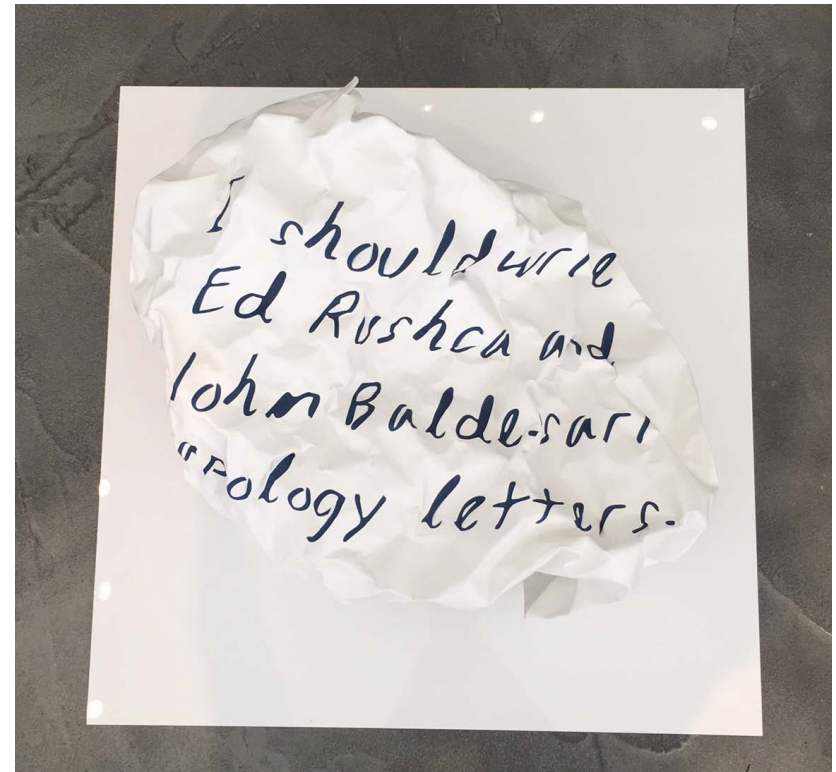 I should write
Ed Rushca and
John Baldessari
apology letters.